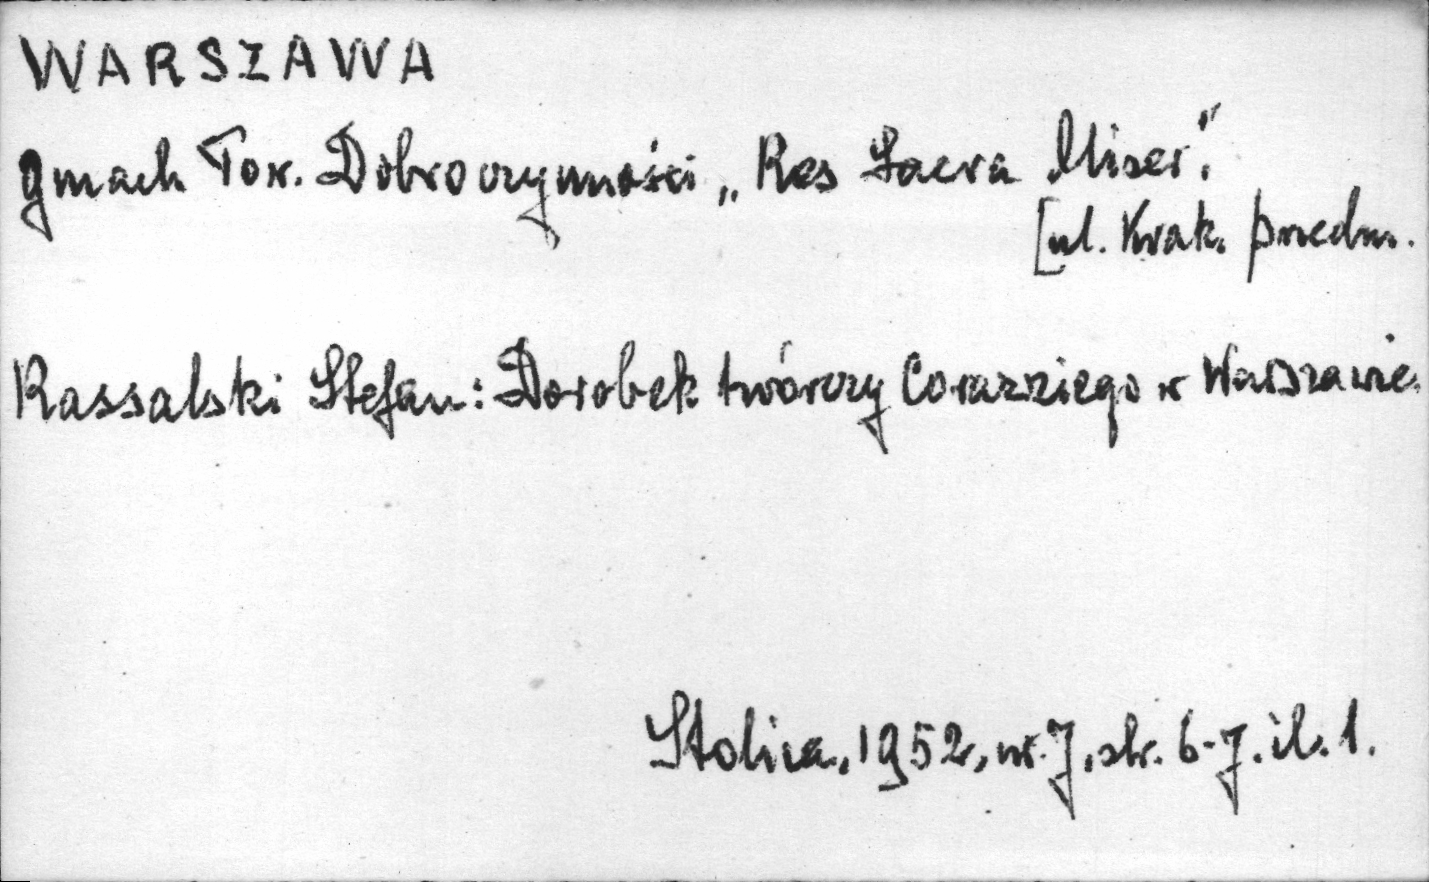 WARSZAWA
gmach Tow. Dobroczynności „Res Sacra Miser".
[ul. Krak. przedm.
Rassalski Stefan: Dorobek twórczy Corazziego w Warszawie.
Stolica, 1952, nr. 7, str. 6-7. il. 1.